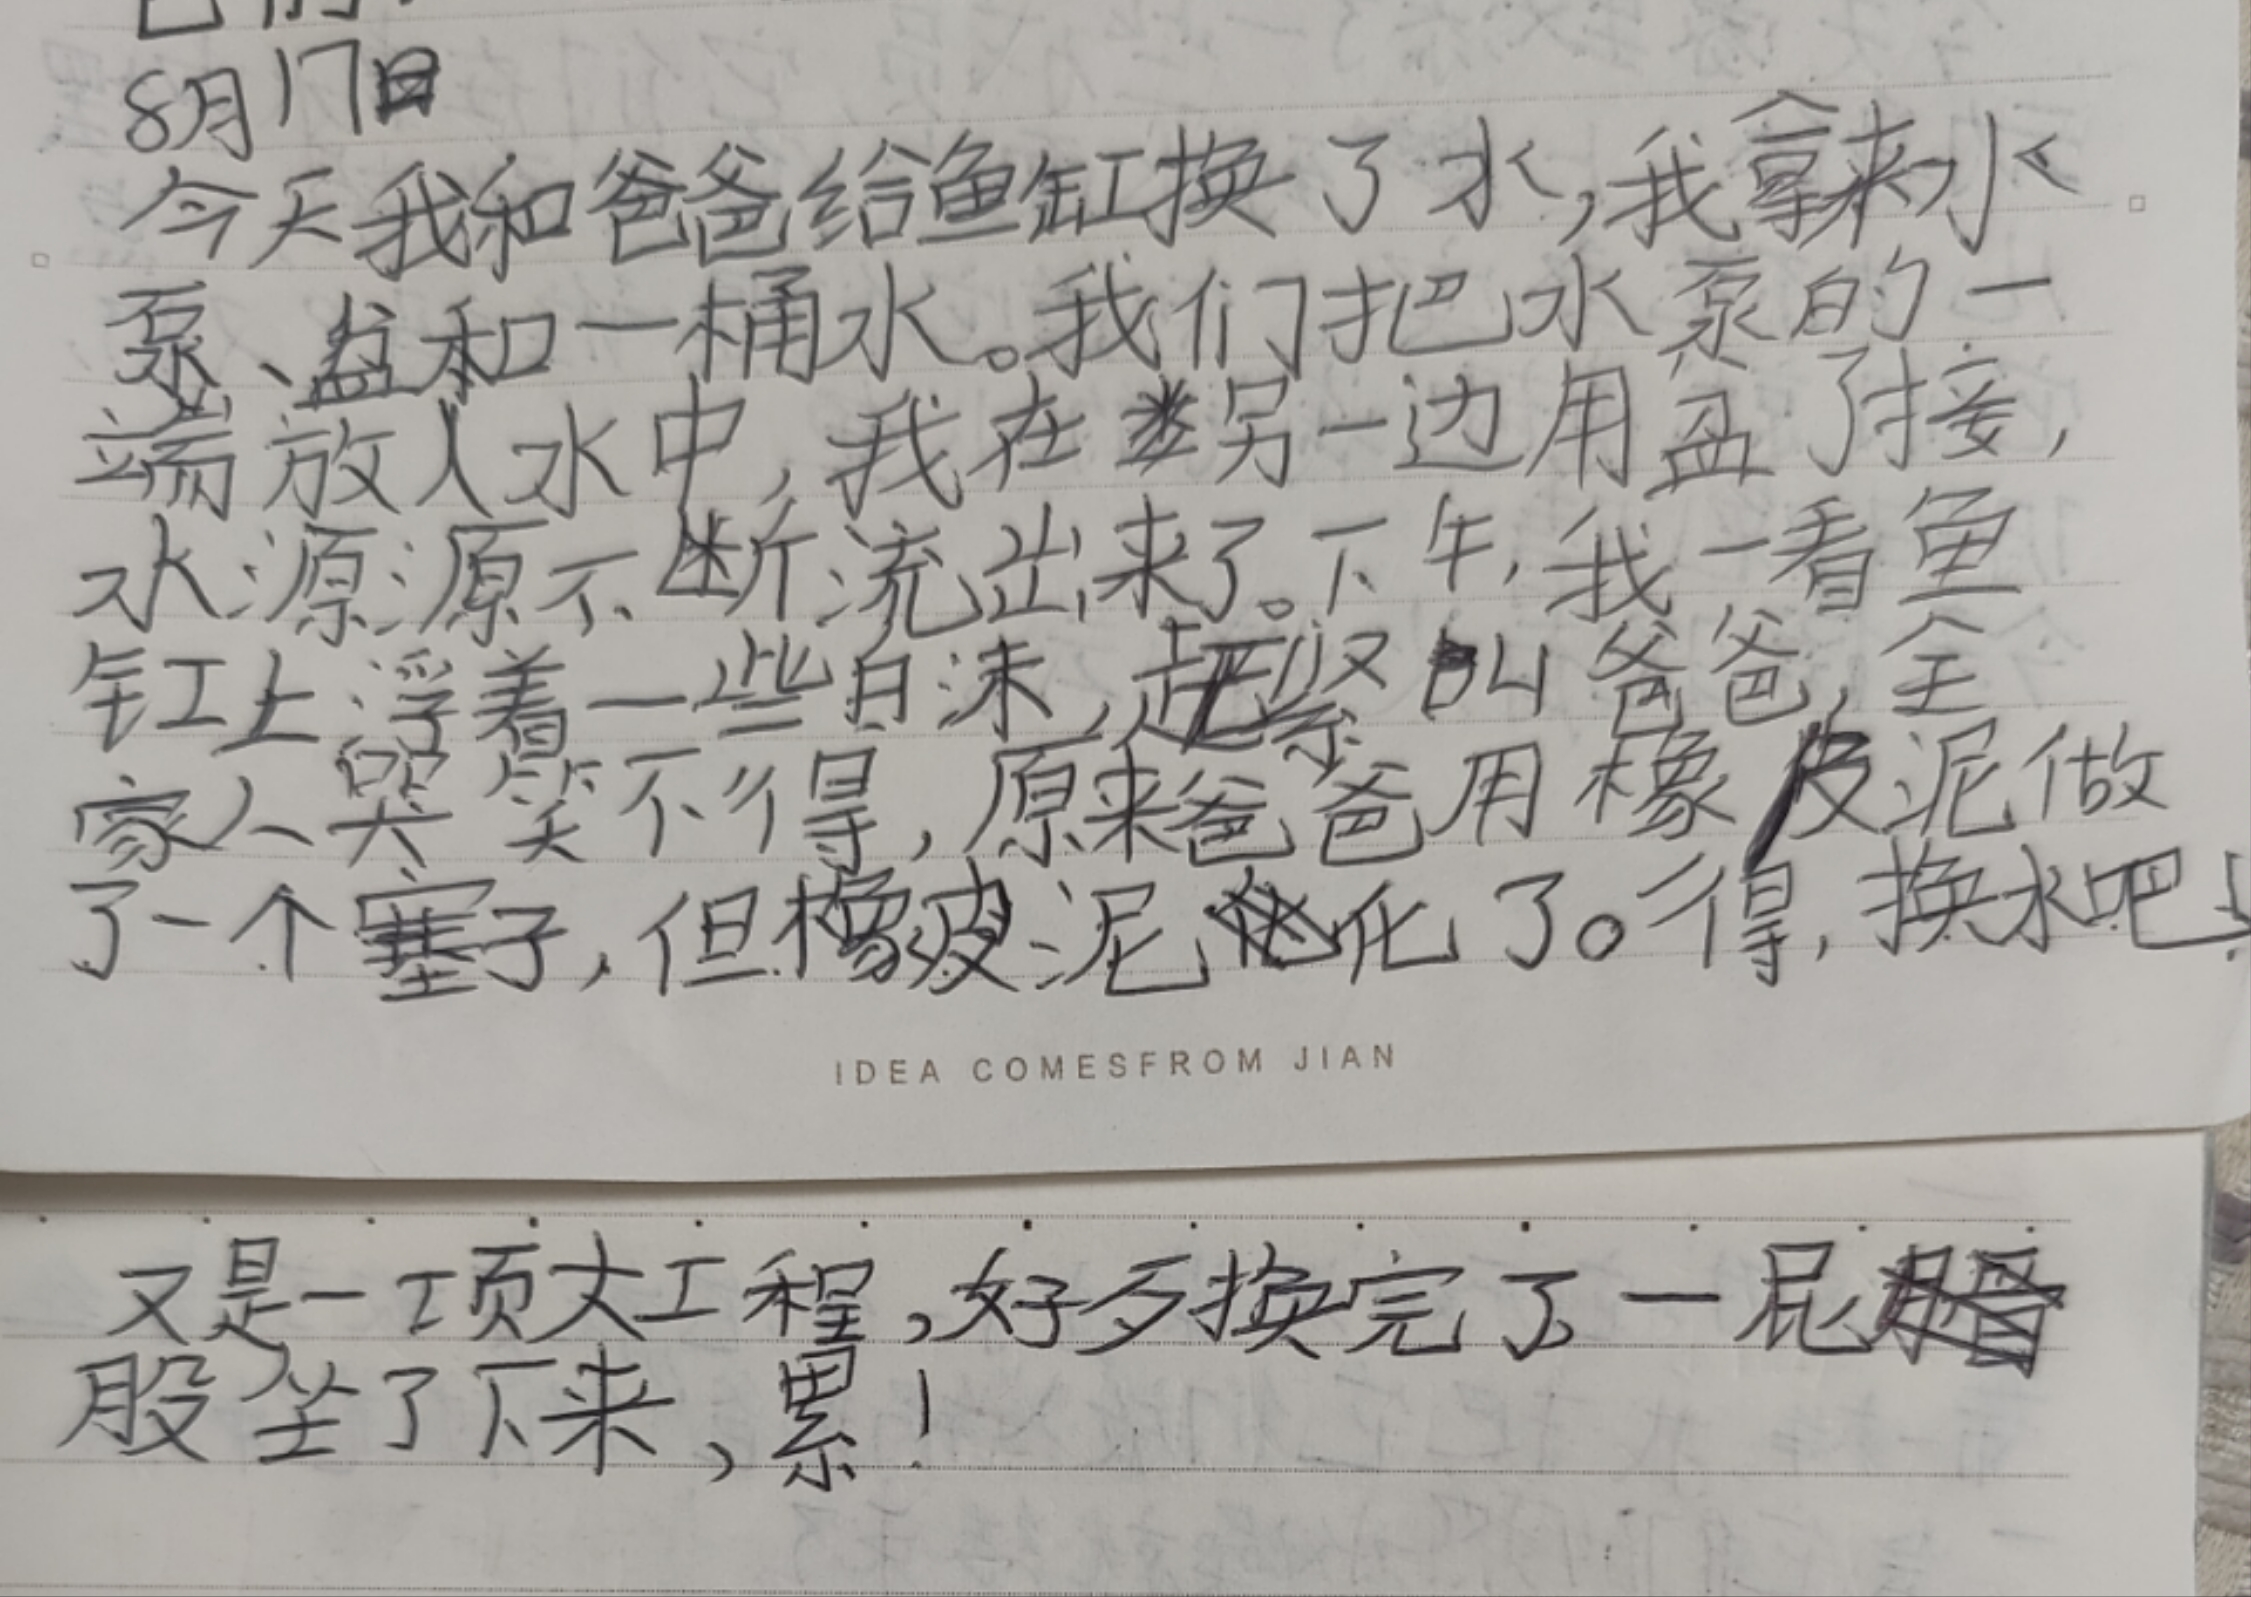 8月17日
今天我和爸爸给鱼缸换了水,我拿来水
泵、盆和一桶水。我们把水泵的一
端放入水中,我在另一边用盆了接,
水源源不断流出来了。下午,我一看鱼
缸上浮着一些白沫,赶紧叫爸爸,全
家人哭笑不得,原来爸爸用橡皮泥做
了一个塞子,但橡皮泥化了。得,换水吧!
IDEA COMESFROM JIAN
又是一项大工程,好歹换完了一屁
股坐了下来,累!